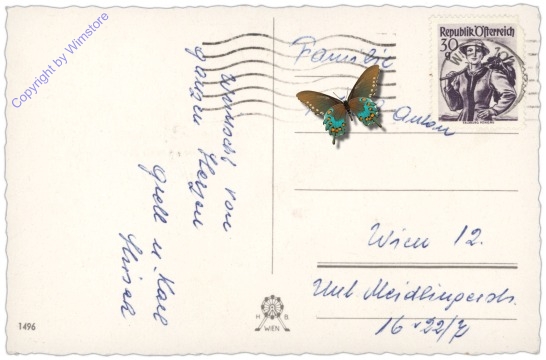 Copyright by Wimstore
Wünscht von
ganzen Herzen
u. Karl
Republik Österreich
30 g
Familie
Anton
Wien 12.
Unt. Meidlingerstr.
16-22/7
1496
H. B.
WIEN